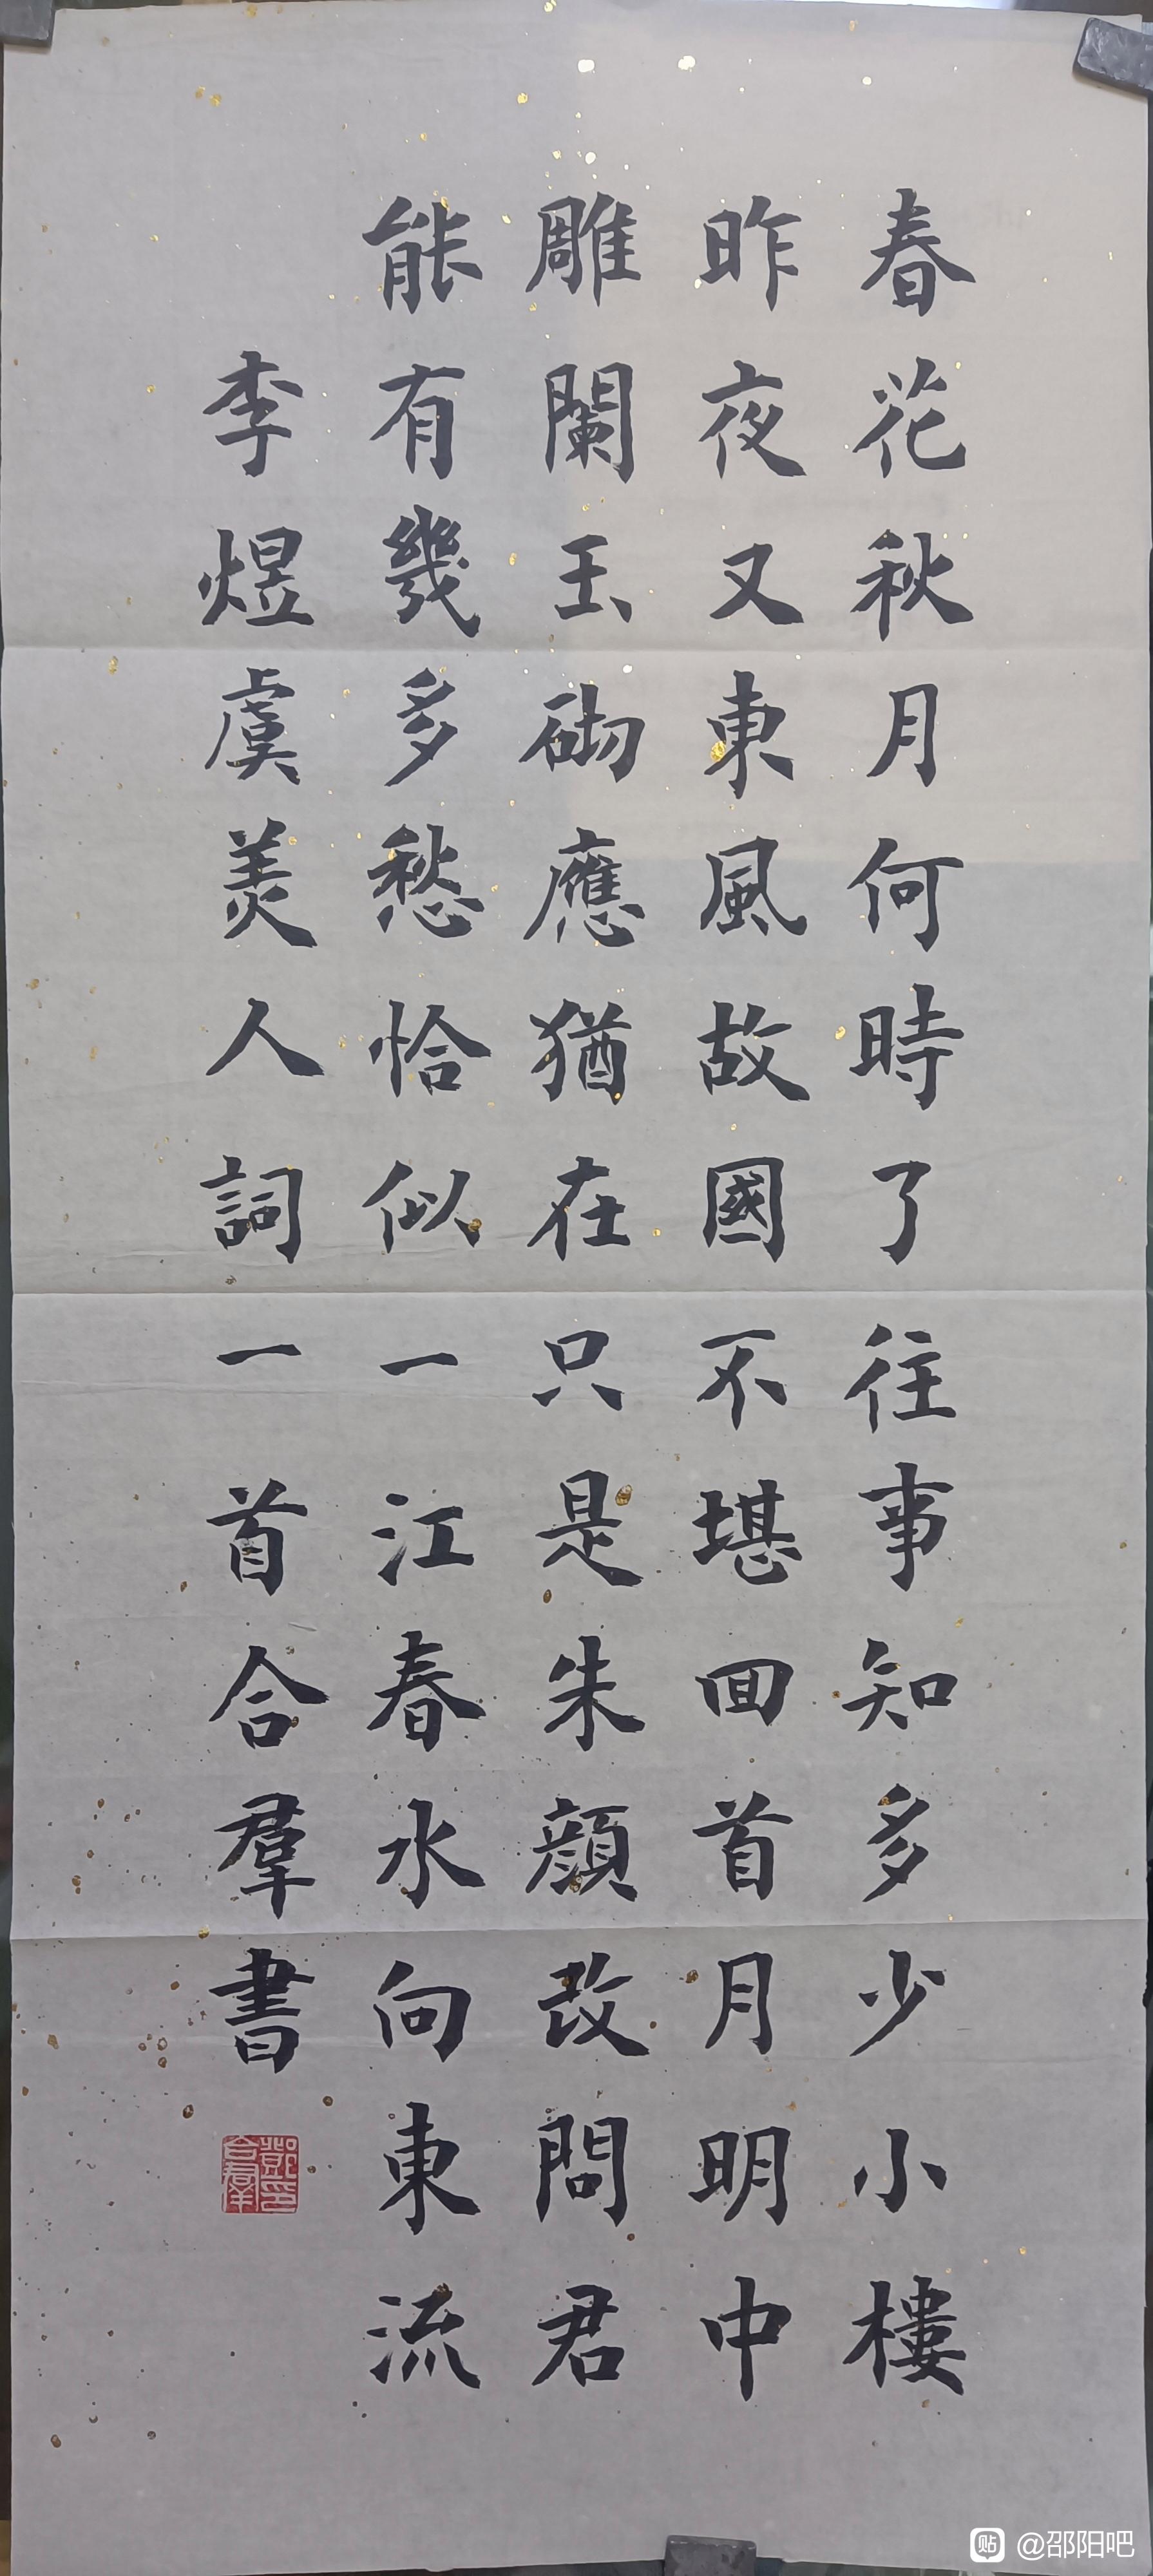 春花秋月何時了往事知多少小樓
昨夜又東風故國不堪回首月明中
雕闌玉砌應猶在只是朱顏改問君
能有幾多愁恰似一江春水向東流
李煜虞美人詞一首合羣書
鄧印合羣
貼 @邵阳吧